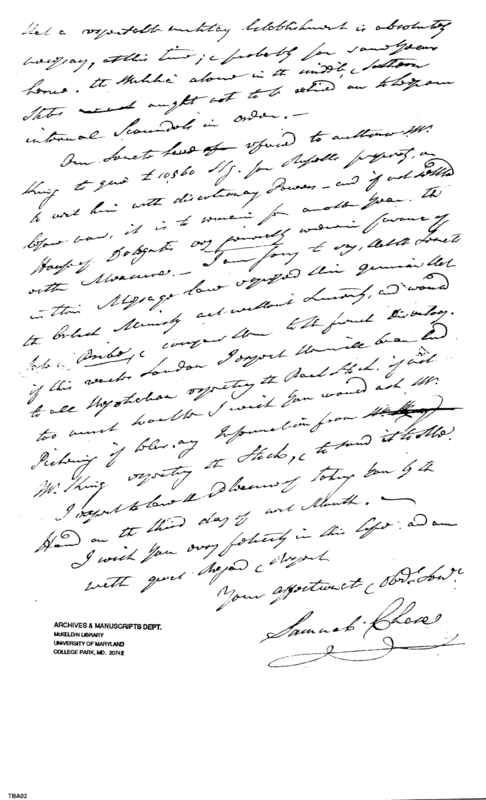 that a respectable military Establishment is absolutely
necessary, at this time; & probably for some Years
hence. the Militia alone in the middle & Southern
States ought not to be relied on to keep our
internal Scoundrels in order. —
Our Senate refused to authorise Mr.
King to give £ 10,960 Stg. for Russells property, or
to vest him with discretionary Powers — and if not settled
before now, it is to remain for another Year. the
House of Delegates very generally were in favour of
with the Measure. — I am sorry to say, that the Senate
in their Message have expressed their opinion that
the British Ministry act without Sincerity, and would
take a Bribe, & compare them to the french Directory.
if this reaches London I expect there will be an End
to all Negotiation respecting the Bank Stock. if not
too much trouble I wish You would ask Mr.
Pickering if he has any Information from
Mr. King respecting the Stock, & to send it to Me.
I expect to have the Pleasure of taking You by the
Hand on the third day of next Month. —
I wish You every felicity in this Life and am
with great Regard & Respect
Your affectionate & Obedt. Servt.
Samuel Chase
ARCHIVES & MANUSCRIPTS DEPT.
McKELDIN LIBRARY
UNIVERSITY OF MARYLAND
COLLEGE PARK, MD. 20742
TBA02